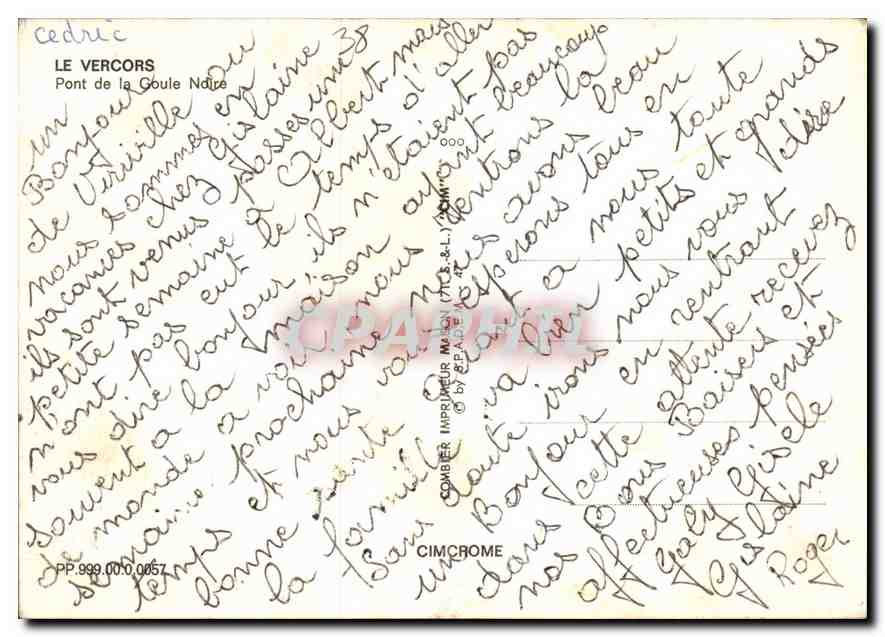 cedric
LE VERCORS
Pont de la Goule Noire
un
Bonjour
de Viriville ou
nous sommes en
vacances chez Gislaine 38
ils sont venus passés une
petite semaine a Albert mais
n'ont pas eut le temps d'aller
vous dire bonjour, ils n'étaient pas
souvent a la maison ayant beaucoup
de monde a voir nous rentrons la
semaine prochaine nous avons beau
temps et nous vous espérons tous en
bonne santé quant a nous toute
la famille va bien petits et grands
Sans doute irons nous vous dire
un Bonjour en rentrant
dans cette attente recevez
nos Bons Baisers et
affectueuses pensées
Gaby Gisele
Gislaine
Roger
COMBIER IMPRIMEUR MACON (71. S.-&-L.) ("CIM")
© by S.P.A.D.E.M.
CIMCROME
PP.999.00.0.0057
CPAPHIL